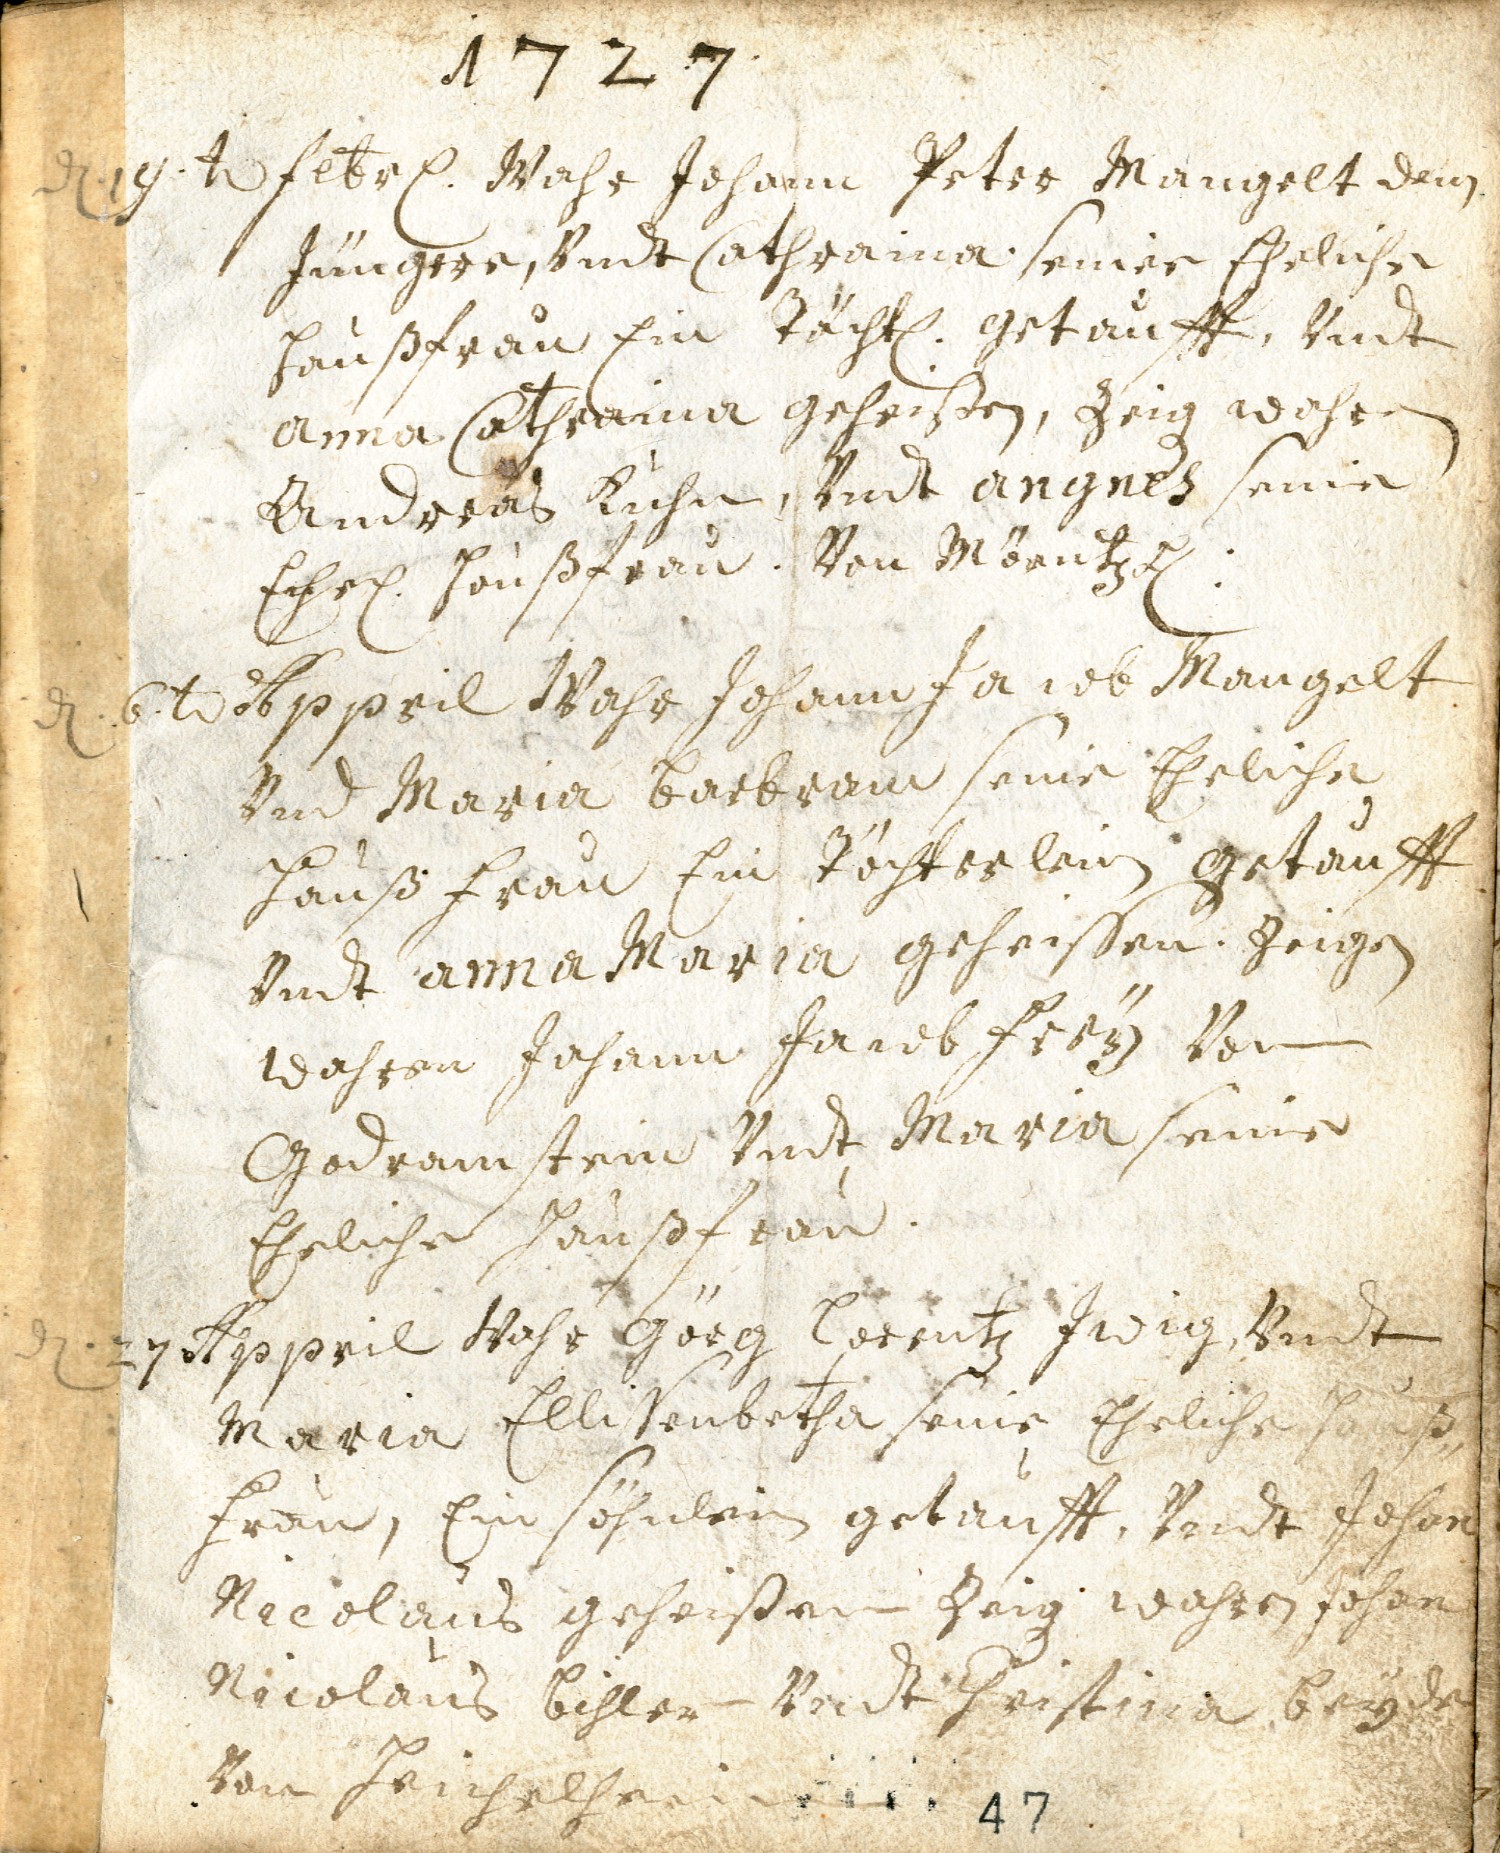 1727
d. 19.t. febr. Wahr Johann Peter Mangolt dem
Jüngere, Vndt Cathraina seiner Eheliche
Haußfrau Ein Töcht. getaufft, Vndt
anna Cathraina geheißen, Zeig wahren
Andreas Kuhn, Vndt angnes seine
Ehel. Haußfrau. Von Mörntzh.
d. 6.t. Appril Wahr Johann Jacob Mangolt
Vnd Maria barbram seine Eheliche
Hauß frau Ein Töchterlein getaufft
Vndt anna Maria geheissen. Zeigen
wahren Johann Jacob freÿ Von
Godramstein Vndt Maria seine
Eheliche Haußfrau.
d. 27 Appril Wahr Görg Lorentz Jwig, Vndt
Maria Ellissenbetha seine Eheliche Hauß,,
frau, Ein söhnlein getaufft, Vndt Johan
Nicolaus geheißen Zeig wahren Johan
Nicolaus bihler Vndt Christina beÿde
Von Heichelheim
47